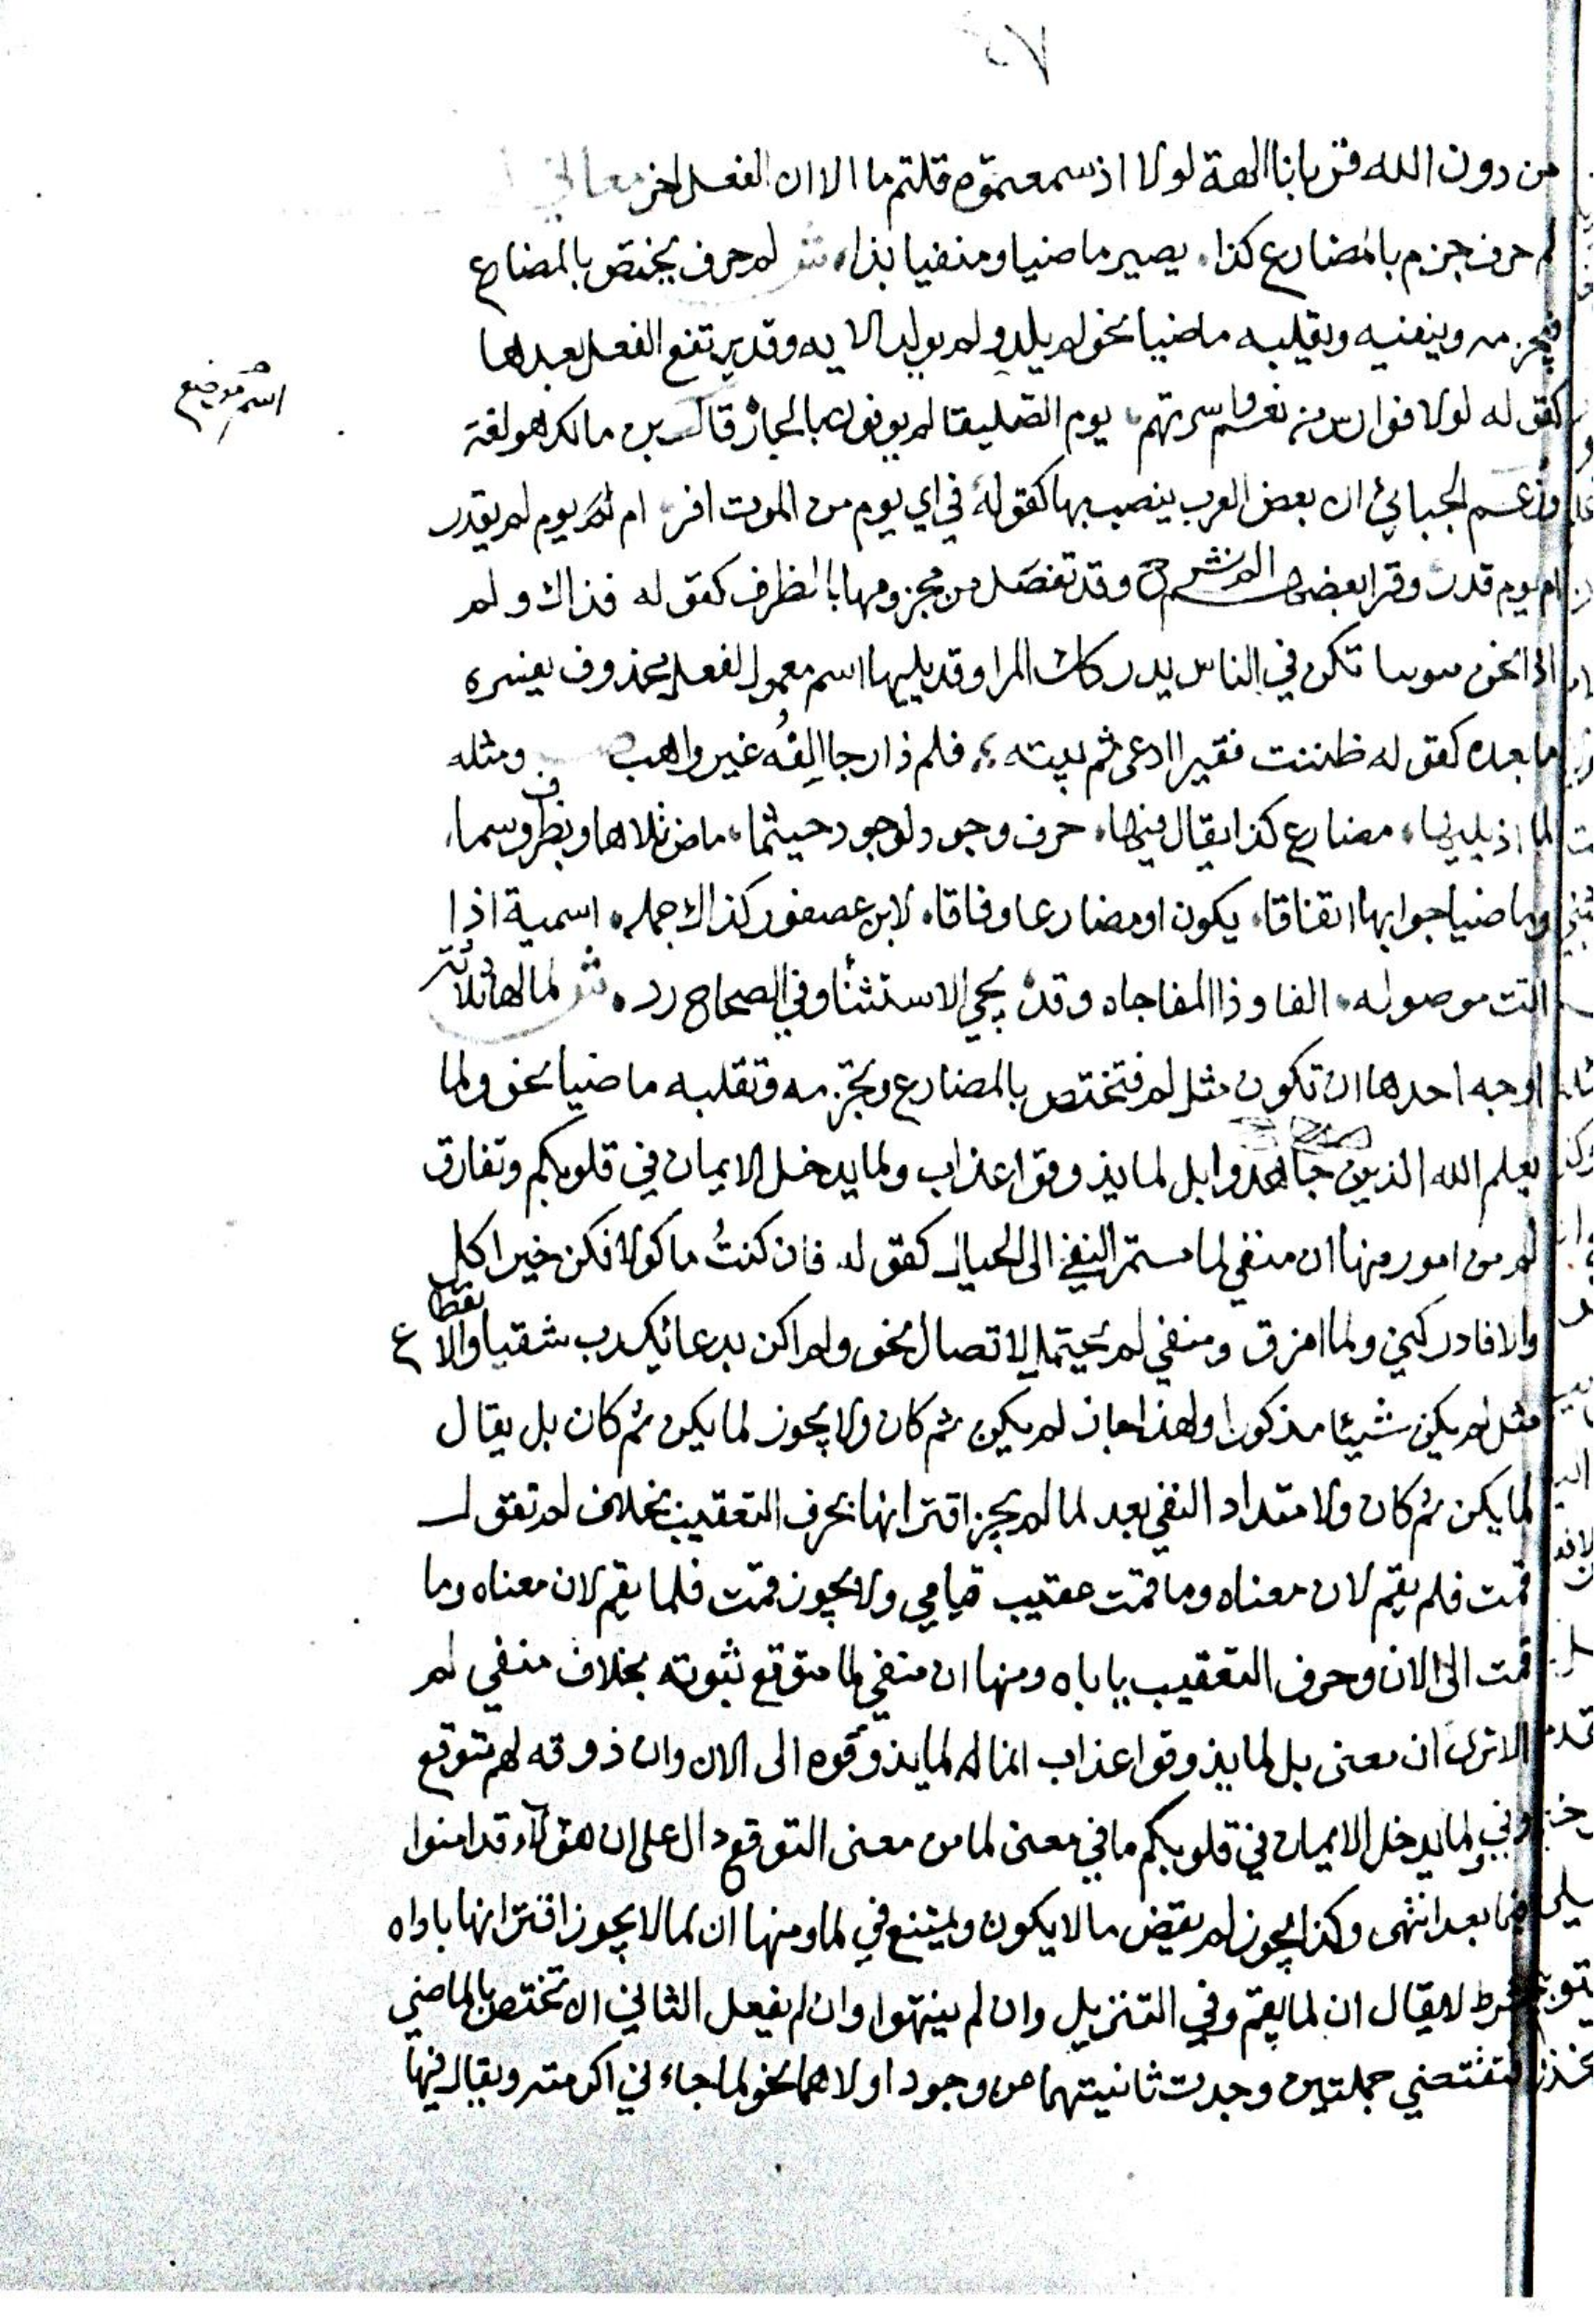 من دون الله قربانا الهة لولا اذ سمعتموه قلتم ما الا ان الفعل اخر معاني
لم حرف جزم بالمضارع كذا، يصير ماضيا ومنفيا بذا، ش لم حرف يختص بالمضارع
فيجزمه وينفيه ويقلبه ماضيا نحو لم يلد ولم يولد الايه وقد يرتفع الفعل بعدها
كقوله لولا فوارس من نعم واسرتهم، يوم الصليفا لم يوفون بالجار قال بن مالك هو لغة
اسم موضع
وزعم الجبائي ان بعض العرب ينصب بها كقوله في اي يوم من الموت افر، ام لم يوم لم يقدر
ام يوم قدر، وقرا بعضهم الم نشرح وقد تفصل من مجزومها بالظرف كقوله فذاك ولم
اذا نحن تكن في الناس يدركك المرا وقد يليها اسم معمول لفعل محذوف يفسره
ما بعده كقوله ظننت فقيرا ادعى ثم ، فلم ذا رجا الفه غير واهب ومثله
لما اذ يليها، مضارع كذا يقال فيها، حرف وجود لوجود حيثما، ماض تلاها وبظرف وسما،
وماضيا جوابها اتفاقا، يكون او مضارعا وفاقا، لابن عصفور كذاك جمله، اسمية اذا
اتت موصوله، الفا وذا المفاجاه وقد يجي الاستثنا وفي الصحاح رد، ش لما لها ثلاثة
اوجه احدها ان تكون مثل لم فتختص بالمضارع وتجزمه وتقلبه ماضيا نحو ولما
يعلم الله الذين جاهدوا بل لما يذوقوا عذاب ولما يدخل الايمان في قلوبكم وتفارق
لم من امور منها ان منفي لما مستمر النفي الى الحال كقوله فان كنتُ ماكولا فكن خير اكل
والا فادركني ولما امزق ومنفي لم يحتمل الاتصال نحو ولم اكن بدعائك رب شقيا والانقطاع
مثل لم يكن شيئا مذكورا ولهذا جاز لم يكن ثم كان ولا يجوز لما يكن ثم كان بل يقال
لما يكن ثم كان ولامتداد النفي بعد لما لم يجز اقترانها بحرف التعقيب بخلاف لم تقول
قمت فلم يقم لان معناه وما قمت عقيب قيامي ولا يجوز قمت فلما يقم لان معناه وما
قمت الى الان وحرف التعقيب ياباه ومنها ان منفي لما متوقع ثبوته بخلاف منفي لم
الا ترى ان معنى بل لما يذوقوا عذاب انما لم لما يذوقوه الى الان وان ذوقه لهم متوقع
وفي ولما يدخل الايمان في قلوبكم ما في معنى لما من معنى التوقع دال على ان هؤلآء قد امنوا
فيما بعد انتهى وكذا يجوز لم يقض ما لا يكون ويمتنع في لما ومنها ان لما لا يجوز اقترانها باداه
شرط لا يقال ان لما يقم وفي التنزيل وان لم ينتهوا وان لم يفعل الثاني ان تختص بالماضي
فتقتضي جملتين وجدت ثانيتهما عن وجود اولاهما نحو لما جاءني اكرمته ويقال فيها